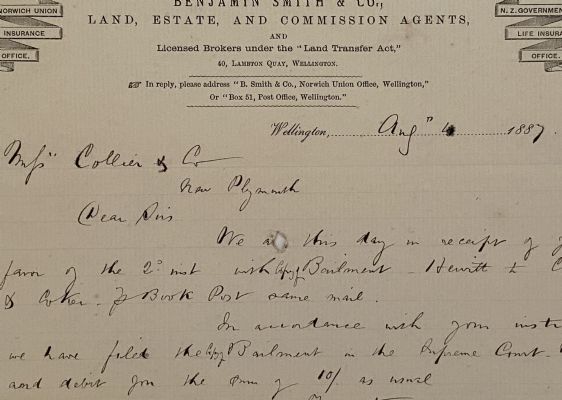 BENJAMIN SMITH & CO.,
NORWICH UNION
INSURANCE
OFFICE.
LAND, ESTATE, AND COMMISSION AGENTS,
N. Z. GOVERNMEN
LIFE INSUR
OFFICE.
AND
Licensed Brokers under the "Land Transfer Act,"
40, LAMBTON QUAY, WELLINGTON.
☞ In reply, please address "B. Smith & Co., Norwich Union Office, Wellington,"
Or "Box 51, Post Office, Wellington."
Wellington, Aug 4 1887.
Messrs Collier & Co
New Plymouth
Dear Sirs
We are this day in receipt of
favor of the 2d inst with Copy of Bailment Hewitt to C
& Coker. p Book Post same mail.
In accordance with your inst
we have filed the Copy of Bailment in the Supreme Court.
and debit you the sum of 10/. as usual